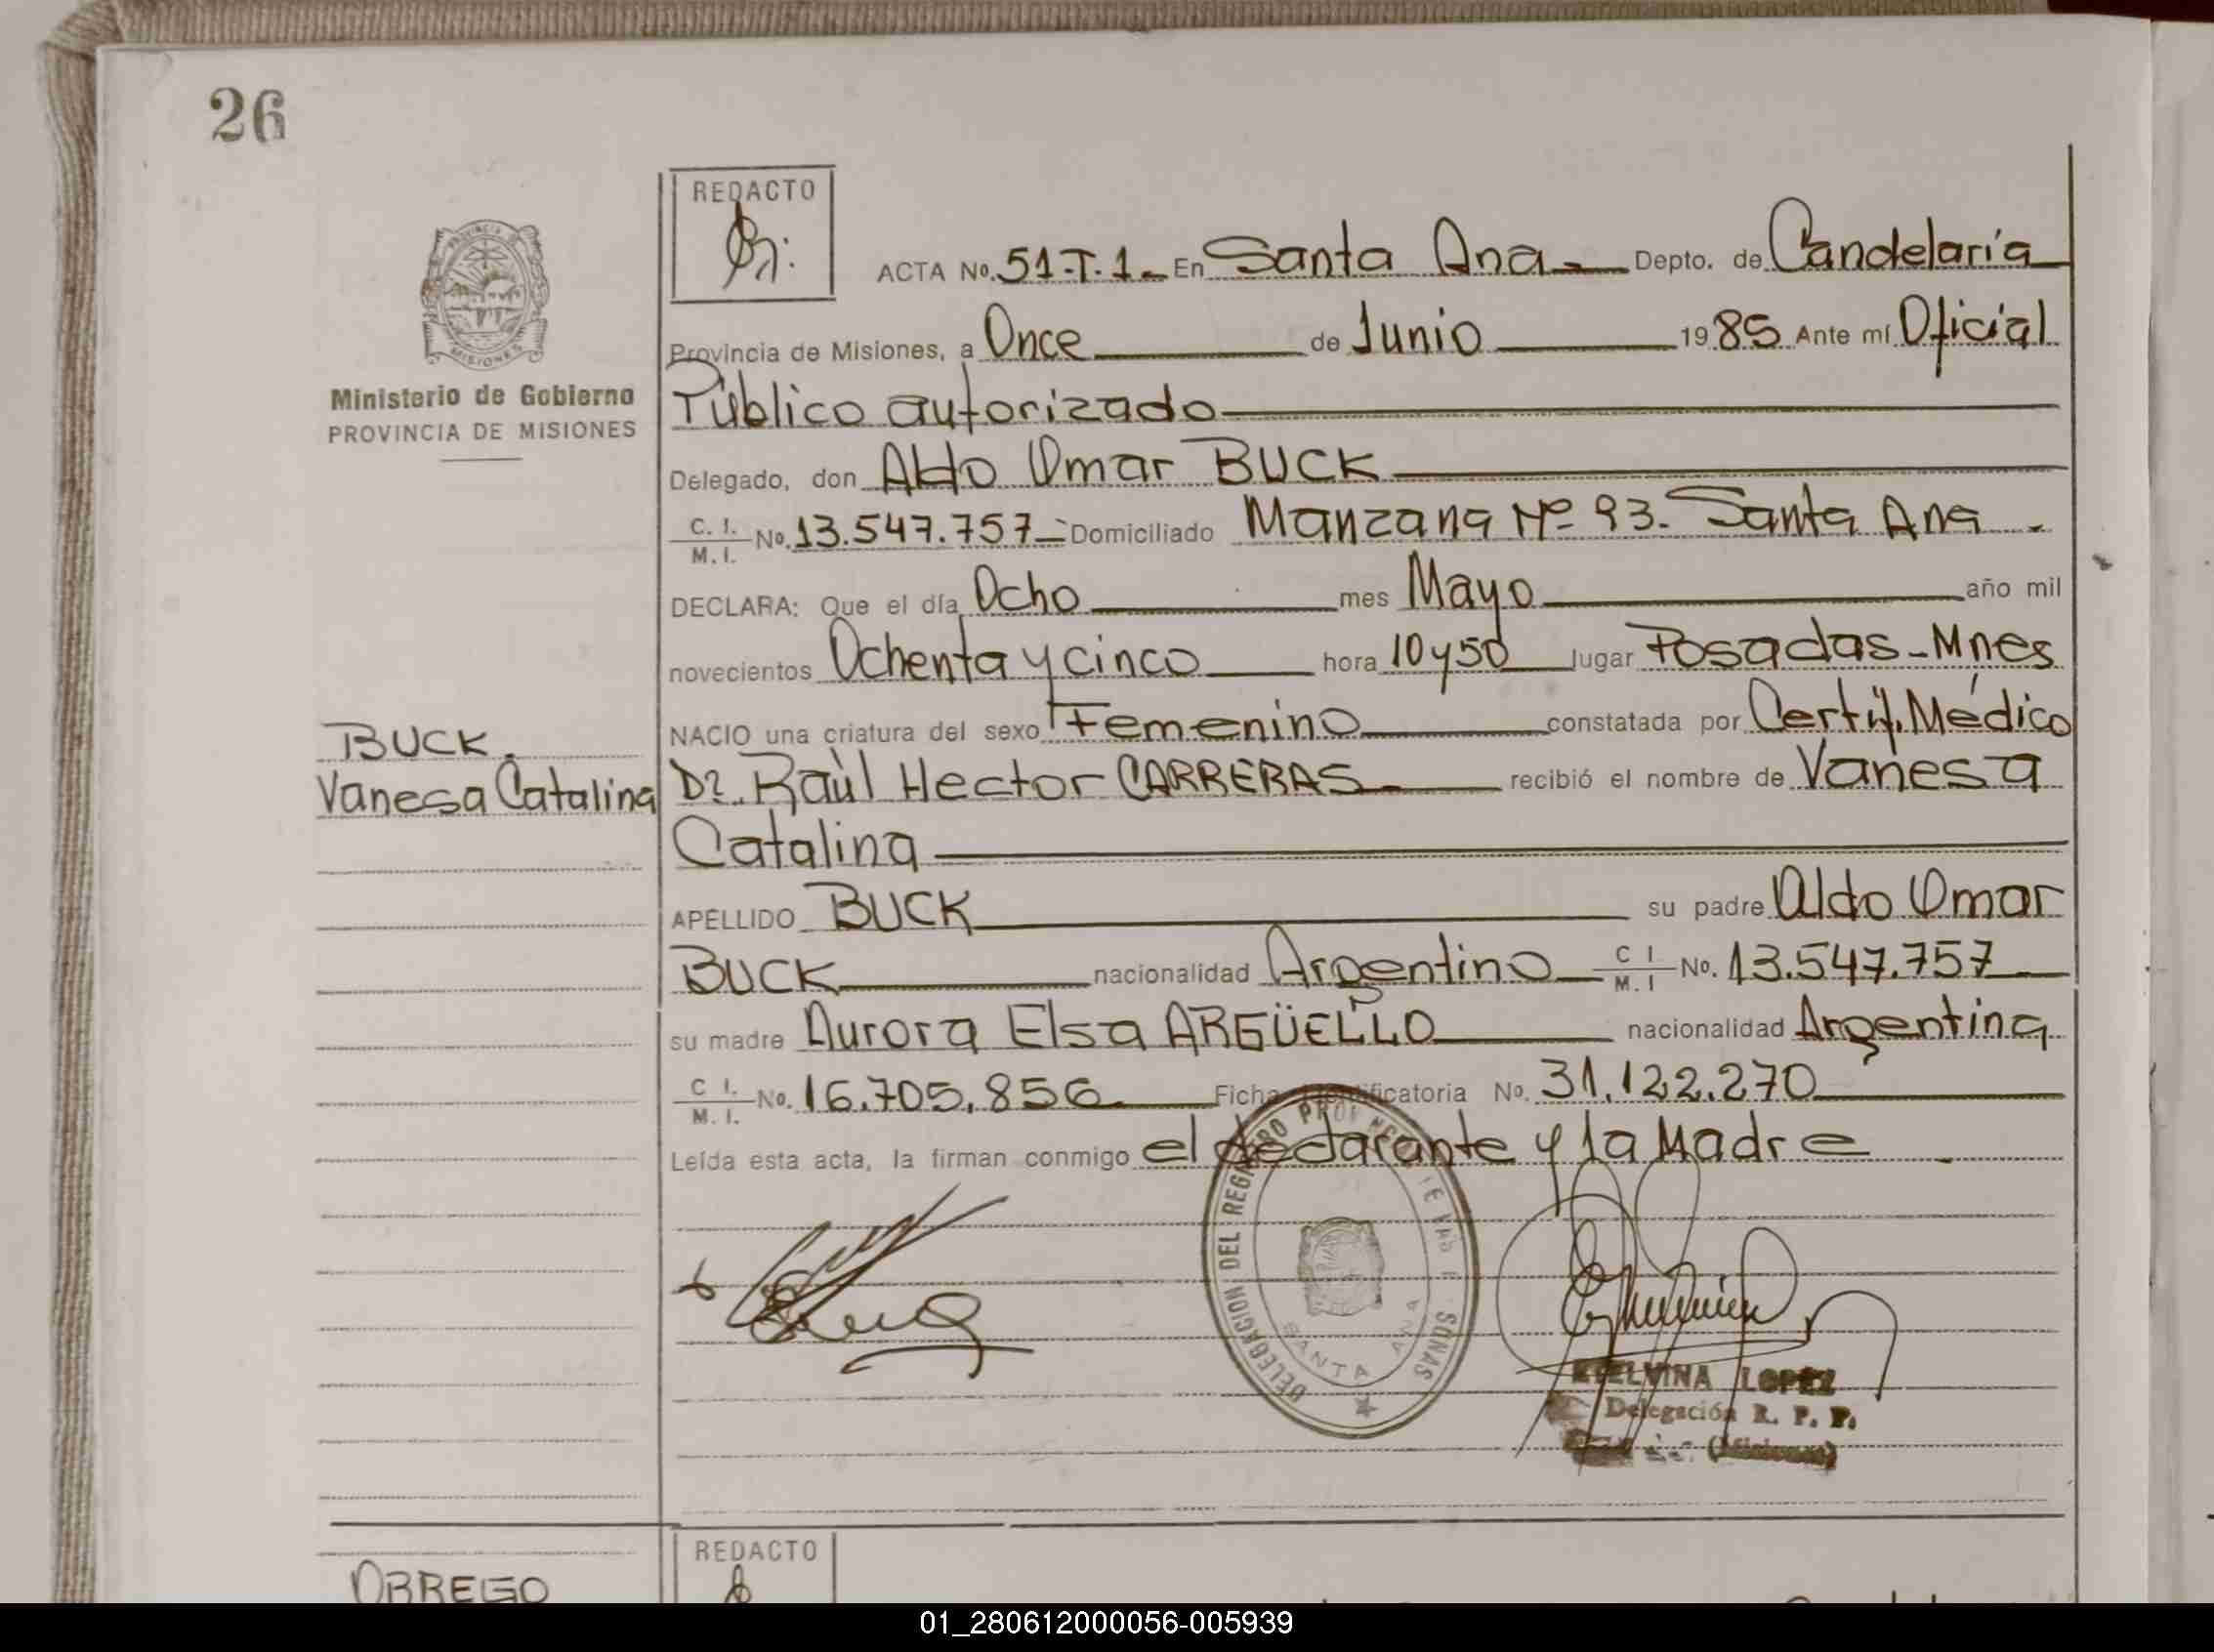 26
REDACTO
ACTA No. 51-T.1- En Santa Ana Depto. de Candelaria
Provincia de Misiones, a Once de Junio 1985 Ante mí Oficial
Ministerio de Gobierno
PROVINCIA DE MISIONES
Público autorizado
Delegado, don Aldo Omar BUCK
C. I. / M. I. No. 13.547.757 Domiciliado Manzana Nº 93. Santa Ana.
DECLARA: Que el día Ocho mes Mayo año mil
novecientos Ochenta y cinco hora 10 y 50 lugar Posadas-Mnes
BUCK.
Vanesa Catalina
NACIO una criatura del sexo Femenino constatada por Certif. Médico
Dr. Raùl Hector CARRERAS recibió el nombre de Vanesa
Catalina
APELLIDO BUCK su padre Aldo Omar
BUCK nacionalidad Argentino C I / M. I No. 13.547.757
su madre Aurora Elsa ARGÜELLO nacionalidad Argentina
C I. / M. I. No. 16.705.856 Ficha Identificatoria No. 31.122.270
Leída esta acta, la firman conmigo el declarante y la Madre
DELEGACION DEL REGISTRO PROVINCIAL
SANTA ANA
LOPEZ
Delegación R. P. P.
(Misiones)
OBREGO
REDACTO
01_280612000056-005939